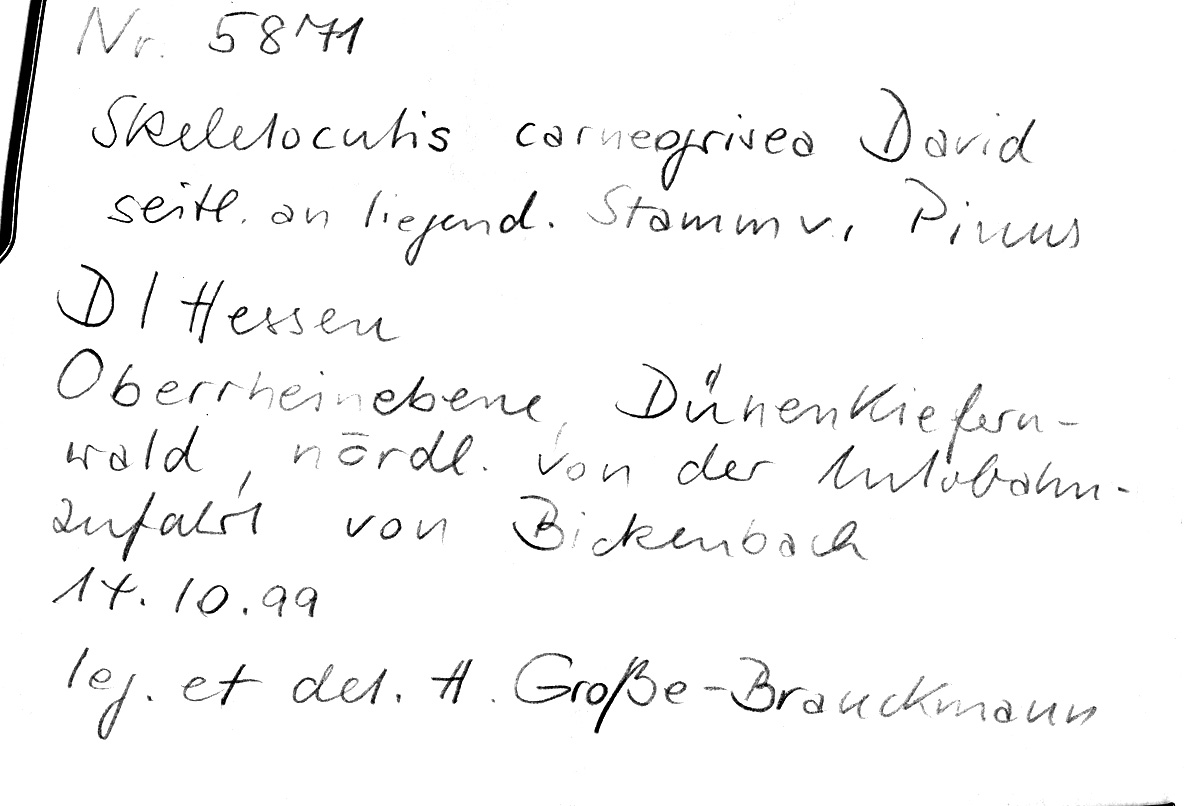 Nr. 5871
Skeletocutis carneogrisea David
seitl. an liegend. Stamm v. Pinus
D / Hessen
Oberrheinebene, Dünenkiefern-
wald, nördl. von der Autobahn-
zufahrt von Bickenbach
14.10.99
leg. et det. H. Große-Brauckmann